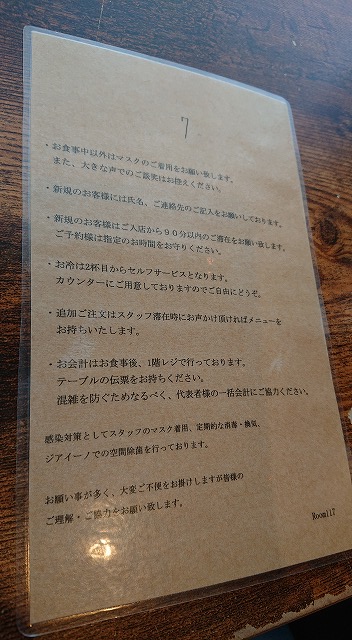 7
・お食事中以外はマスクのご着用をお願い致します。
また、大きな声でのご談笑はお控えください。
・新規のお客様には氏名、ご連絡先のご記入をお願いしております。
・新規のお客様はご入店から90分以内のご滞在をお願い致します。
ご予約様は指定のお時間をお守りください。
・お冷は2杯目からセルフサービスとなります。
カウンターにご用意しておりますのでご自由にどうぞ。
・追加ご注文はスタッフ滞在時にお声かけ頂ければメニューを
お持ちいたします。
・お会計はお食事後、1階レジで行っております。
テーブルの伝票をお持ちください。
混雑を防ぐためなるべく、代表者様の一括会計にご協力ください。
感染対策としてスタッフのマスク着用、定期的な消毒・換気、
ジアイーノでの空間除菌を行っております。
お願い事が多く、大変ご不便をお掛けしますが皆様の
ご理解・ご協力をお願い致します。
Room117